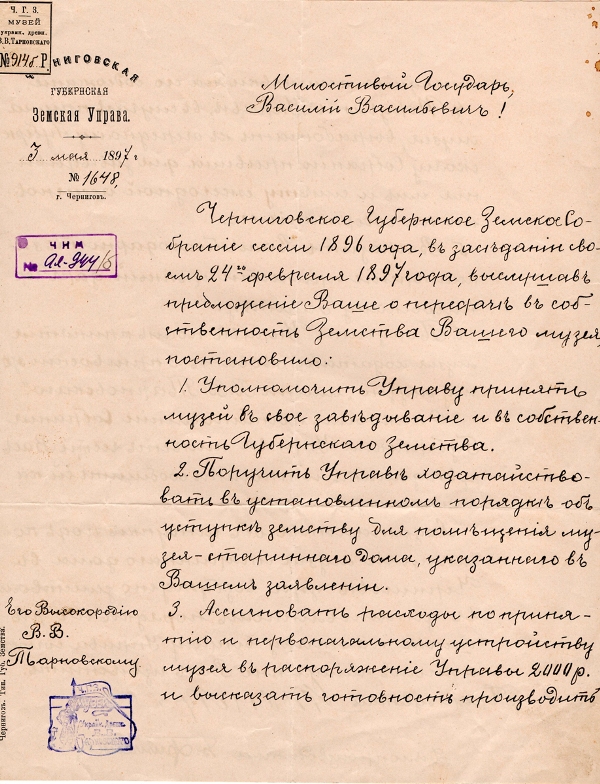 Ч. Г. З.
МУЗЕЙ
украин. древн.
В.В.Тарновскаго
№ 9145 Р.
ЧЕРНИГОВСКАЯ
ГУБЕРНСКАЯ
Земская Управа.
3 мая 1897 г
№ 1648,
г. Черниговъ.
ЧНМ
№ Ал-944/5
Милостивый Государь,
Василій Васильевичъ!
Черниговское Губернское Земское Со-
браніе сессіи 1896 года, въ засѣданіи сво-
емъ 24го февраля 1897 года, выслушавъ
предложеніе Ваше о передачѣ въ соб-
ственность Земства Вашего музея,
постановило:
1. Уполномочить Управу принять
музей въ свое завѣдываніе и въ собствен-
ность Губернскаго Земства.
2. Поручить Управѣ ходатайство-
вать въ установленномъ порядкѣ объ
уступкѣ земству для помѣщенія му-
зея-стариннаго дома, указаннаго въ
Вашемъ заявленіи.
3. Ассигновать расходы по приня-
тію и первоначальному устройству
музея въ распоряженіе Управы 2000 р.
и высказать готовность производить
Его Высокородію
В. В.
Тарновскому.
Черниговъ. Тип. Губ. Земства.